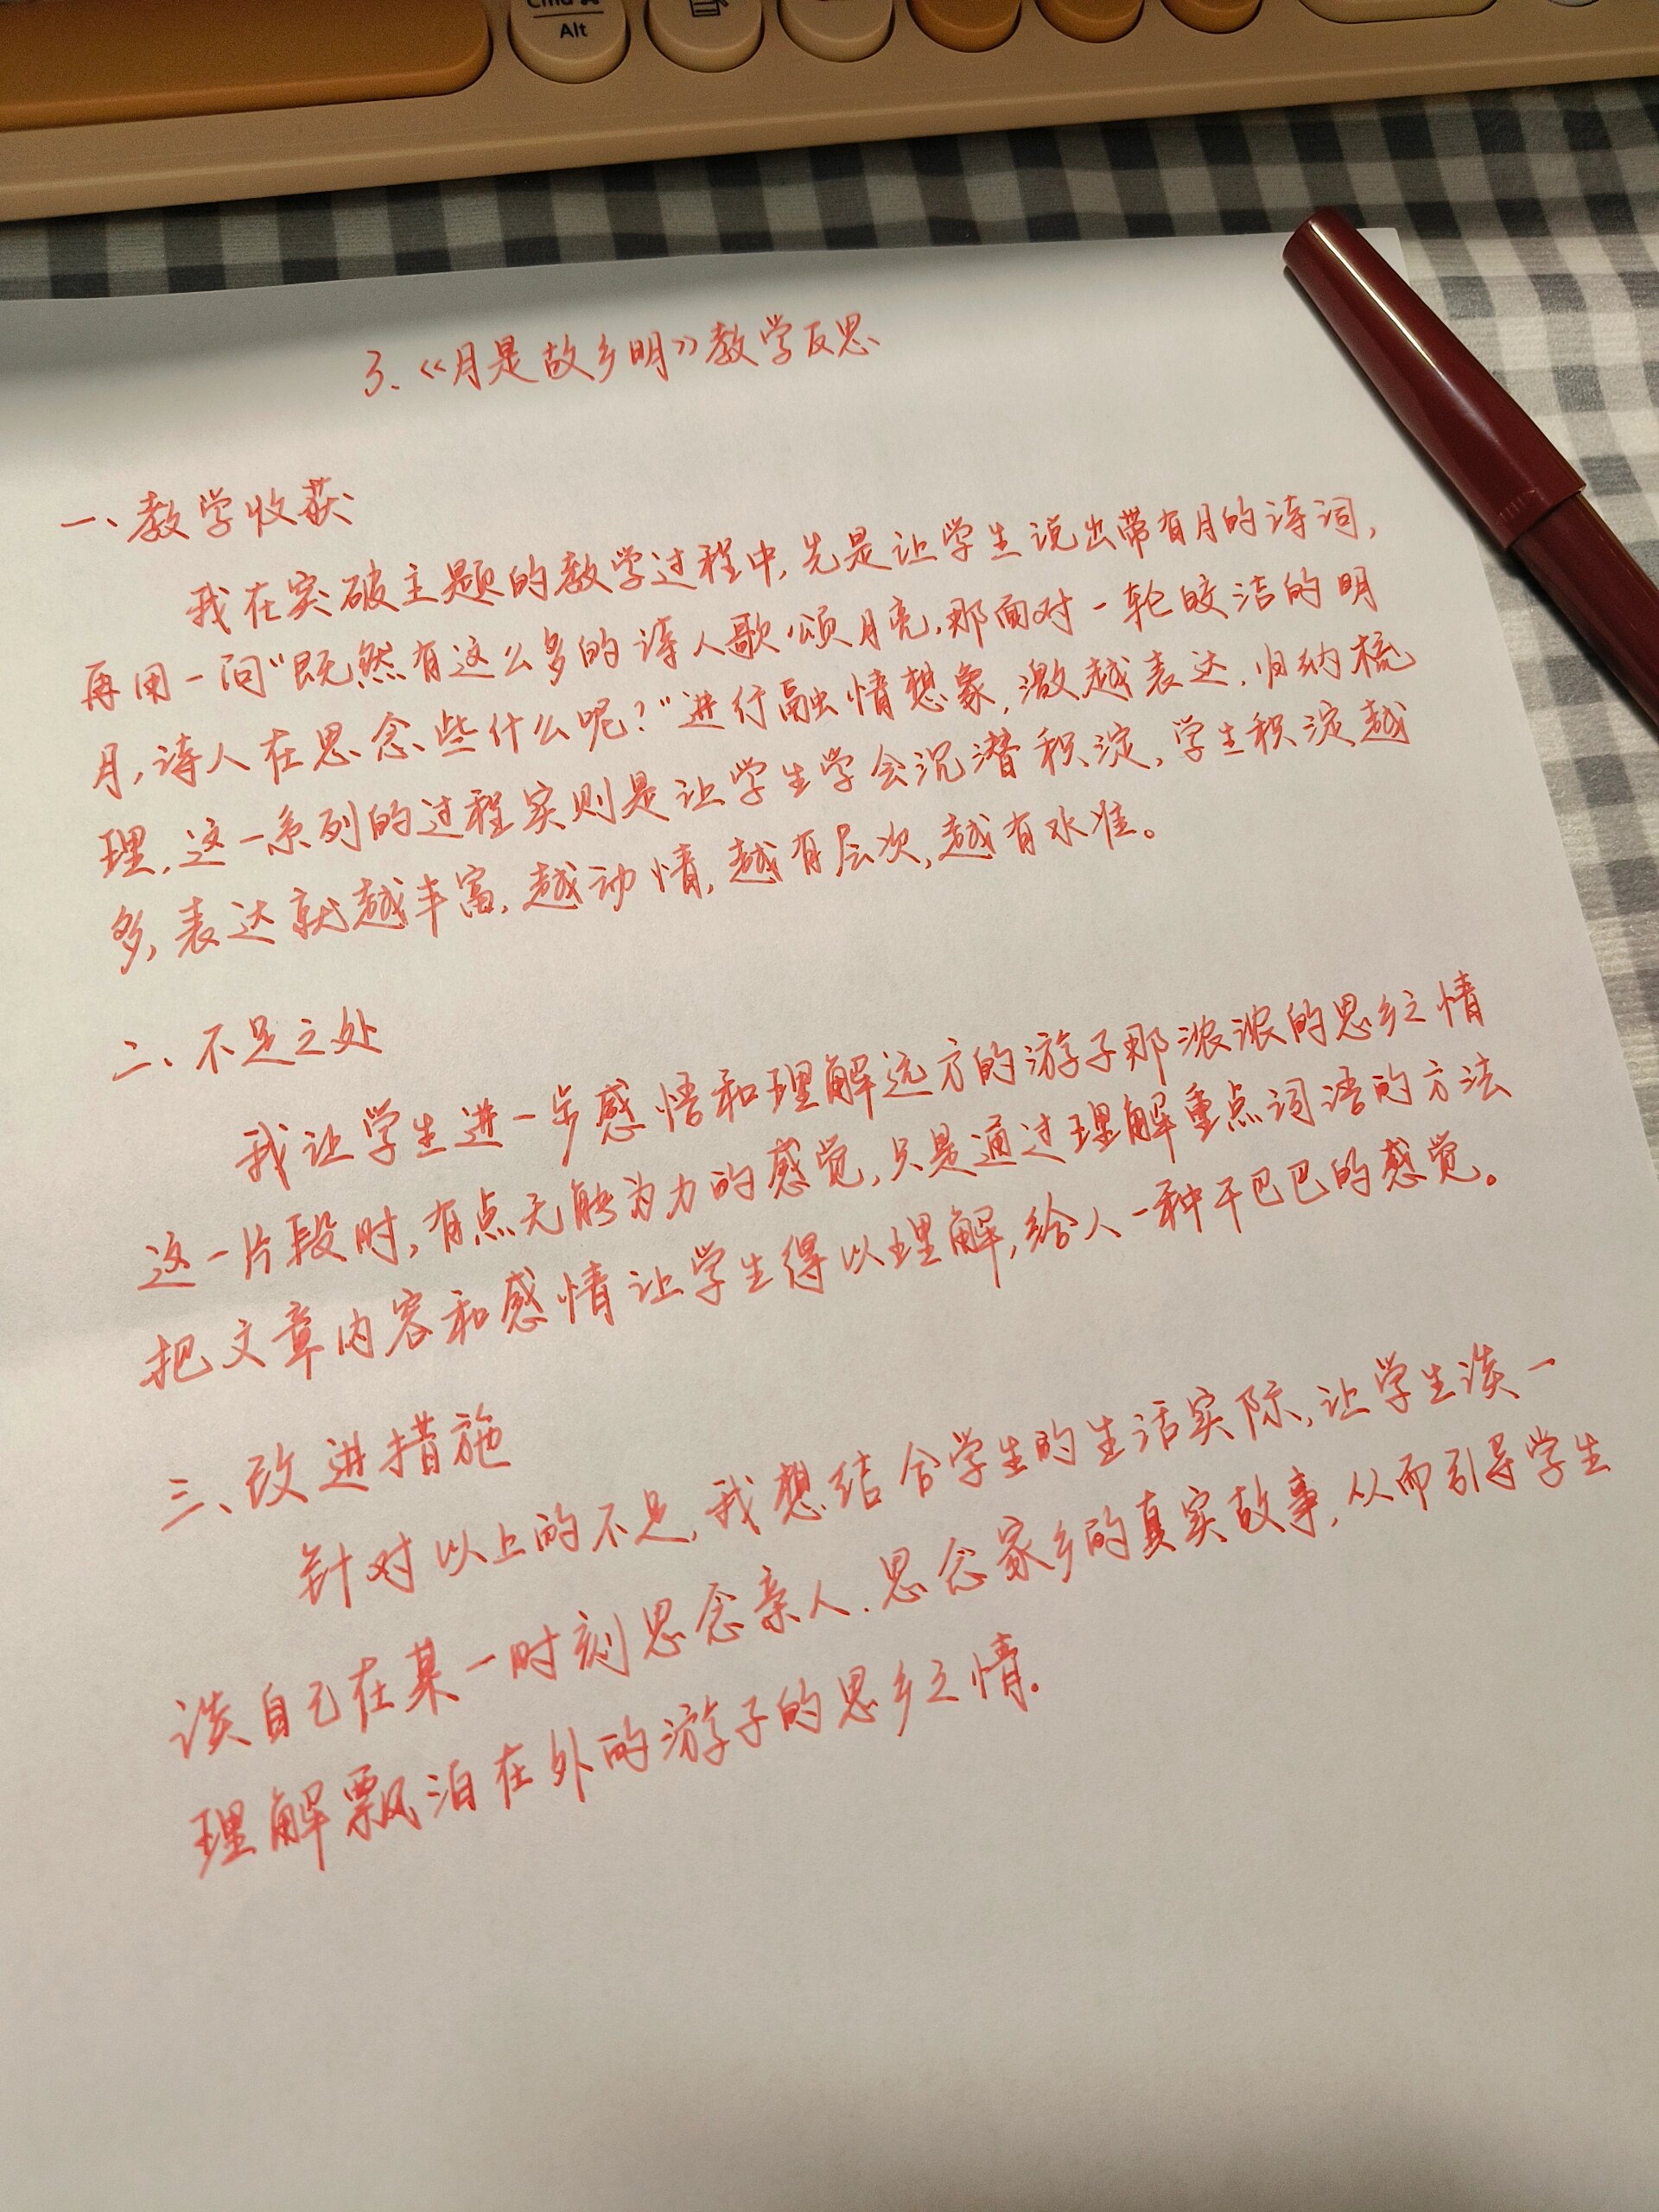 Cmd
Alt
3.《月是故乡明》教学反思
一、教学收获
我在突破主题的教学过程中,先是让学生说出带有月的诗词,
再用一问"既然有这么多的诗人歌颂月亮,那面对一轮皎洁的明
月,诗人在思念些什么呢?"进行融情想象,激越表达,归纳梳
理,这一系列的过程实则是让学生学会沉潜积淀,学生积淀越
多,表达就越丰富,越动情,越有层次,越有水准。
二、不足之处
我让学生进一步感悟和理解远方的游子那浓浓的思乡之情
这一片段时,有点无能为力的感觉,只是通过理解重点词语的方法
把文章内容和感情让学生得以理解,给人一种干巴巴的感觉。
三、改进措施
针对以上的不足,我想结合学生的生活实际,让学生谈一
谈自己在某一时刻思念亲人.思念家乡的真实故事,从而引导学生
理解飘泊在外的游子的思乡之情.